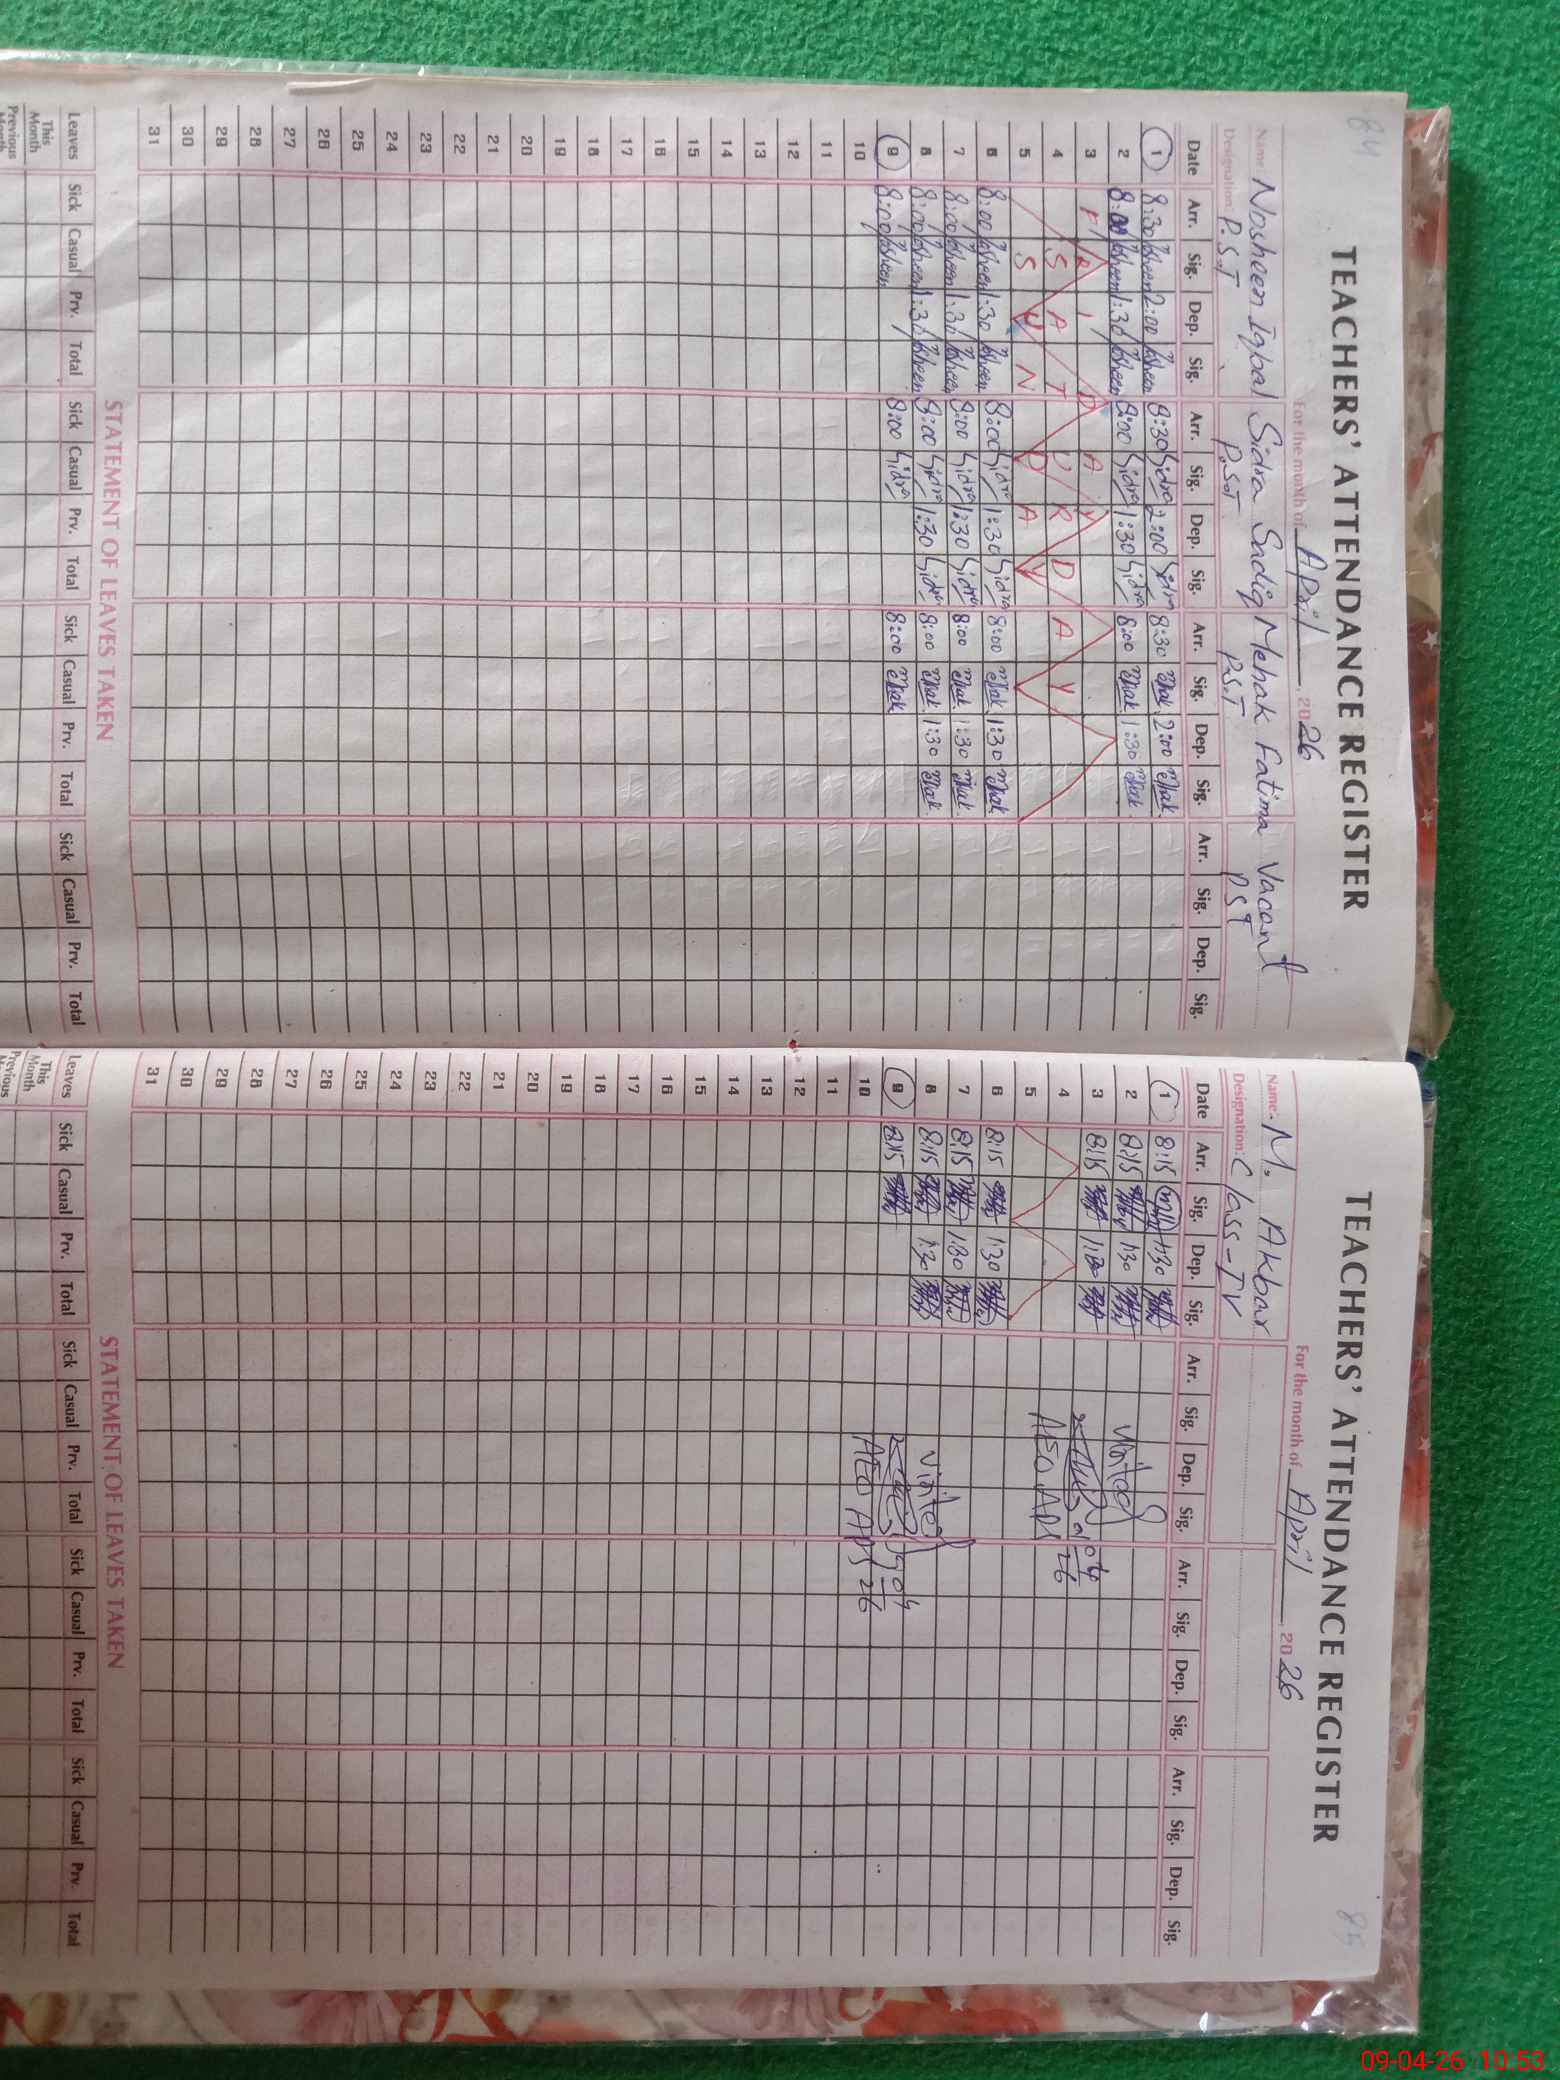 84
TEACHERS' ATTENDANCE REGISTER
For the month of April, 2026
Name: Nosheen Iqbal Sidra Sadiq Mehak Fatima Vacant
Designation: P.S.T P.S.T P.S.T PST
Date Arr. Sig. Dep. Sig. Arr. Sig. Dep. Sig. Arr. Sig. Dep. Sig. Arr. Sig. Dep. Sig.
1 8:30 2:00 8:30 Sidra 2:00 Sidra 8:30 2:00
2 8:00 1:30 8:00 Sidra 1:30 Sidra 8:00 1:30
3 F R I D A Y
4 S A T U R D A Y
5 S U N D A Y
6 8:00 1:30 8:00 Sidra 1:30 Sidra 8:00 1:30
7 8:00 1:30 8:00 Sidra 1:30 Sidra 8:00 1:30
8 8:00 1:30 8:00 Sidra 1:30 Sidra 8:00 1:30
9 8:00 8:00 Sidra 8:00
10
11
12
13
14
15
16
17
18
19
20
21
22
23
24
25
26
27
28
29
30
31
STATEMENT OF LEAVES TAKEN
Leaves Sick Casual Prv. Total Sick Casual Prv. Total Sick Casual Prv. Total Sick Casual Prv. Total
This Month
Previous
85
TEACHERS' ATTENDANCE REGISTER
For the month of April, 2026
Name: M. Akbar
Designation: Class-IV
Date Arr. Sig. Dep. Sig. Arr. Sig. Dep. Sig. Arr. Sig. Dep. Sig. Arr. Sig. Dep. Sig.
1 8:15 1:30
2 8:15 1:30 Visited
3 8:15 1:30
4 AEO
5
6 8:15 1:30
7 8:15 1:30
8 8:15 1:30 Visited
9 8:15
10 AEO
11
12
13
14
15
16
17
18
19
20
21
22
23
24
25
26
27
28
29
30
31
STATEMENT OF LEAVES TAKEN
Leaves Sick Casual Prv. Total Sick Casual Prv. Total Sick Casual Prv. Total Sick Casual Prv. Total
This Month
Previous
09-04-26 10:53